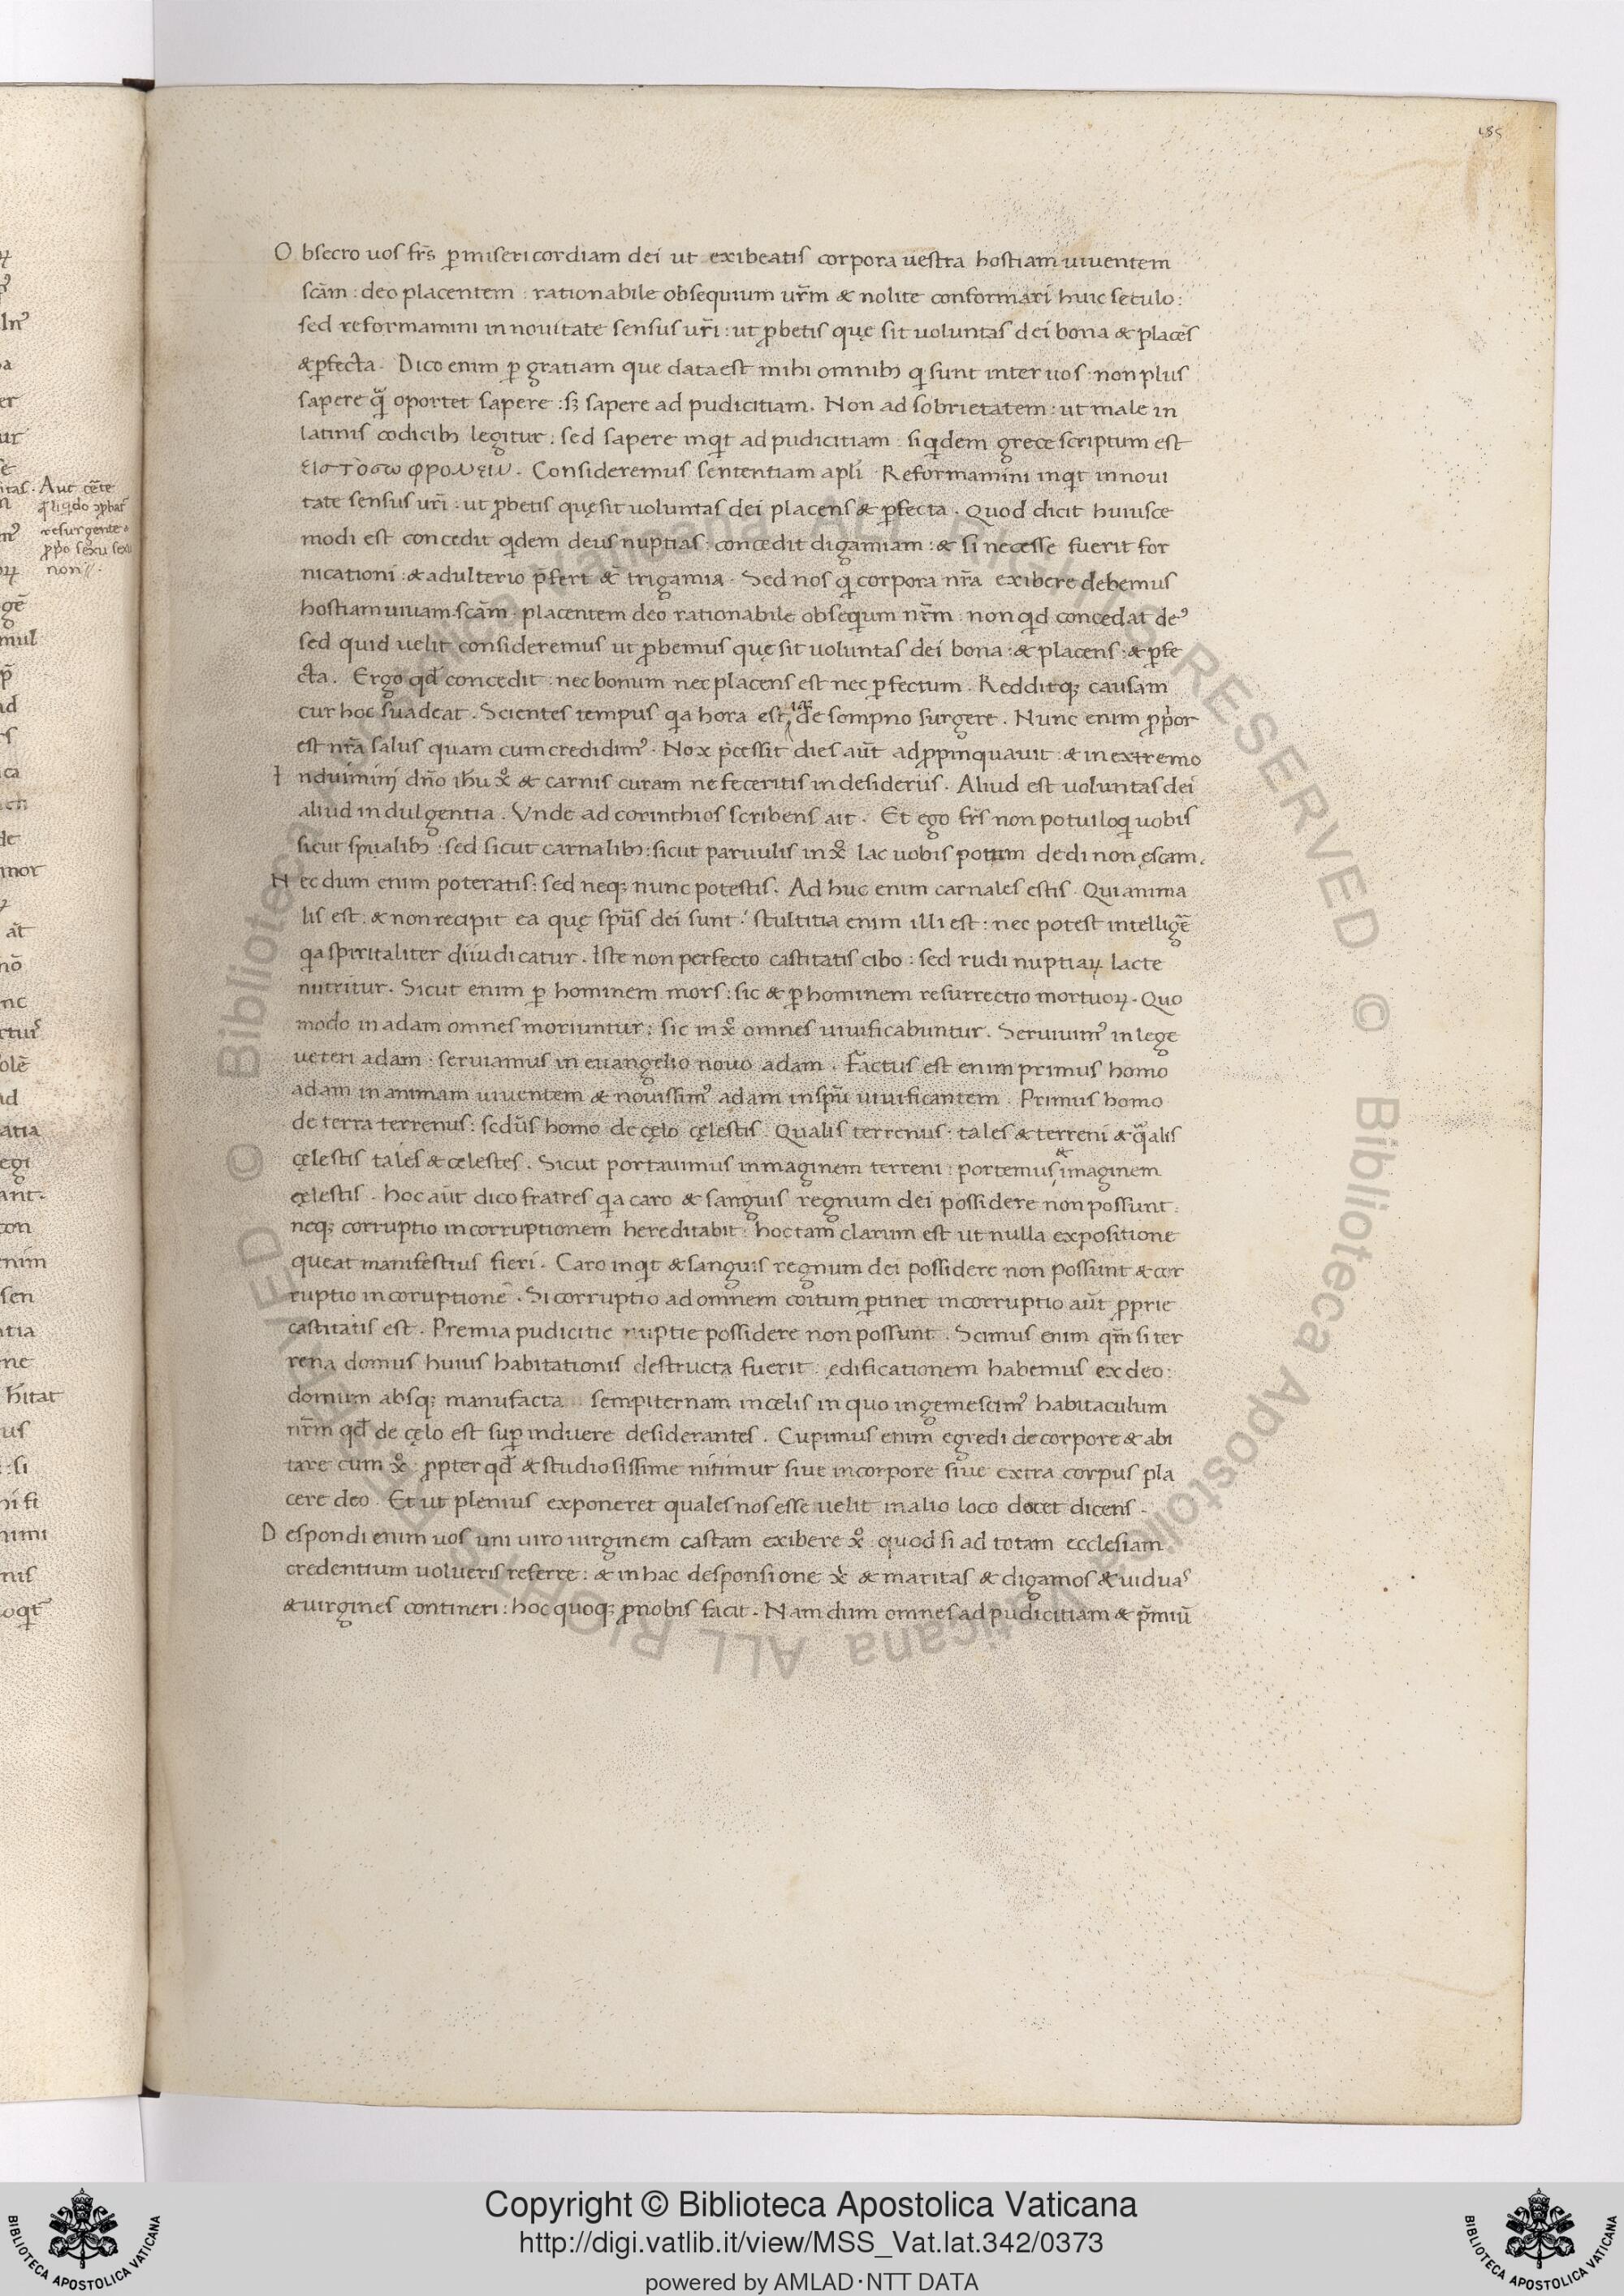 185
O bsecro uos fr̄s p̲ misericordiam dei ut exibeatis corpora uestra hostiam uiuentem
scām : deo placentem : rationabile obsequium ur̄m & nolite conformari huic seculo :
sed reformamini in nouitate sensus ur̄i : ut ꝓbetis quę sit uoluntas dei bona & placēs
& ꝑfecta . Dico enim ꝑ gratiam que data est mihi omnibꝫ qͥ sunt inter uos : non plus
sapere qͣ̄ oportet sapere : sꝫ sapere ad pudicitiam . Non ad sobrietatem : ut male in
latinis codicibꝫ legitur : sed sapere inqͥt ad pudicitiam : siqͥdem grece scriptum est
ειστοσω φρονειν . Consideremus sententiam apl̄i . Reformamini inqͥt in noui
tate sensus ur̄i : ut ꝓbetis quę sit uoluntas dei placens & ꝑfecta . Quod dicit huiusce
modi est concedit qͥdem deus nuptias : concedit digamiam : & si necesse fuerit for
nicationi : & adulterio p̄fert & trigamia . Sed nos qͥ corpora nr̄a exibere debemus
hostiam uiuam scām . placentem deo rationabile obseqͥum nr̄m : non qͥd concedat deꝰ
sed quid uelit consideremus ut ꝓbemus quę sit uoluntas dei bona : & placens : & ꝑfe
cta . Ergo qd̄ concedit : nec bonum nec placens est nec ꝑfectum . Redditqꝫ causam
cur hoc suadeat . Scientes tempus qͥa hora est iā de sompno surgere . Nunc enim ꝓpͥor
est nr̄a salus quam cum credidimꝰ . Nox p̄cessit dies aūt adꝓpinquauit . & in extremo
I nduimini dn̄o ih̄u xͦ & carnis curam ne feceritis in desideriis . Aliud est uoluntas dei
aliud indulgentia . Vnde ad corinthios scribens ait . Et ego fr̄s non potui loqͥ uobis
sicut spualibꝫ : sed sicut carnalibꝫ : sicut paruulis in xͦ lac uobis potum dedi non ęscam .
N ec dum enim poteratis : sed neqꝫ nunc potestis . Ad huc enim carnales estis . Qui anima
lis est : & non recipit ea quę spūs dei sunt : stultitia enim illi est : nec potest intelligē
qͥa spiritaliter diiudicatur . Iste non perfecto castitatis cibo : sed rudi nuptiaꝝ lacte
nutritur . Sicut enim ꝑ hominem mors : sic & ꝑ hominem resurrectio mortuoꝝ . Quo
modo in adam omnes moriuntur : sic in xͦ omnes uiuificabuntur . Seruiuimꝰ in lege
ueteri adam : seruiamus in euangelio nouo adam . Factus est enim primus homo
adam in animam uiuentem & nouissimꝰ adam in spū uiuificantem . Primus homo
de terra terrenus : sedūs homo de cęlo cęlestis . Qualis terrenus : tales & terreni & qͣlis
cęlestis tales & celestes . Sicut portauimus inmaginem terreni : portemus & imaginem
cęlestis . hoc aūt dico fratres qͥa caro & sanguis regnum dei possidere non possunt :
neqꝫ corruptio incorruptionem hereditabit : hoc tam clarum est ut nulla expositione
queat manifestius fieri . Caro inqͥt & sanguis regnum dei possidere non possunt & cor
ruptio incoruptionē . Si corruptio ad omnem coitum ꝑtinet incorruptio aūt ꝓprie
castitatis est . Premia pudicitie nuptie possidere non possunt . Scimus enim qm̄ si ter
rena domus huius habitationis destructa fuerit : ędificationem habemus ex deo :
domum absqꝫ manufacta sempiternam in cęlis in quo ingemescimꝰ habitaculum
nr̄m qd̄ de cęlo est suꝑinduere desiderantes . Cupimus enim egredi de corpore & abi
tare cum xͦ : ꝓpter qd̄ & studiosissime nitimur siue in corpore siue extra corpus pla
cere deo . Et ut plenius exponeret quales nos esse uelit in alio loco docet dicens .
D espondi enim uos uni uiro uirginem castam exibere xͦ : quod si ad totam ecclesiam
credentium uolueris referre : & in hac desponsione xͥ & maritas & digamos & uiduas
& uirgines contineri : hoc quoqꝫ ꝓ nobis facit . Nam dum omnes ad pudicitiam & p̄miū
Copyright © Biblioteca Apostolica Vaticana
http://digi.vatlib.it/view/MSS_Vat.lat.342/0373
powered by AMLAD·NTT DATA